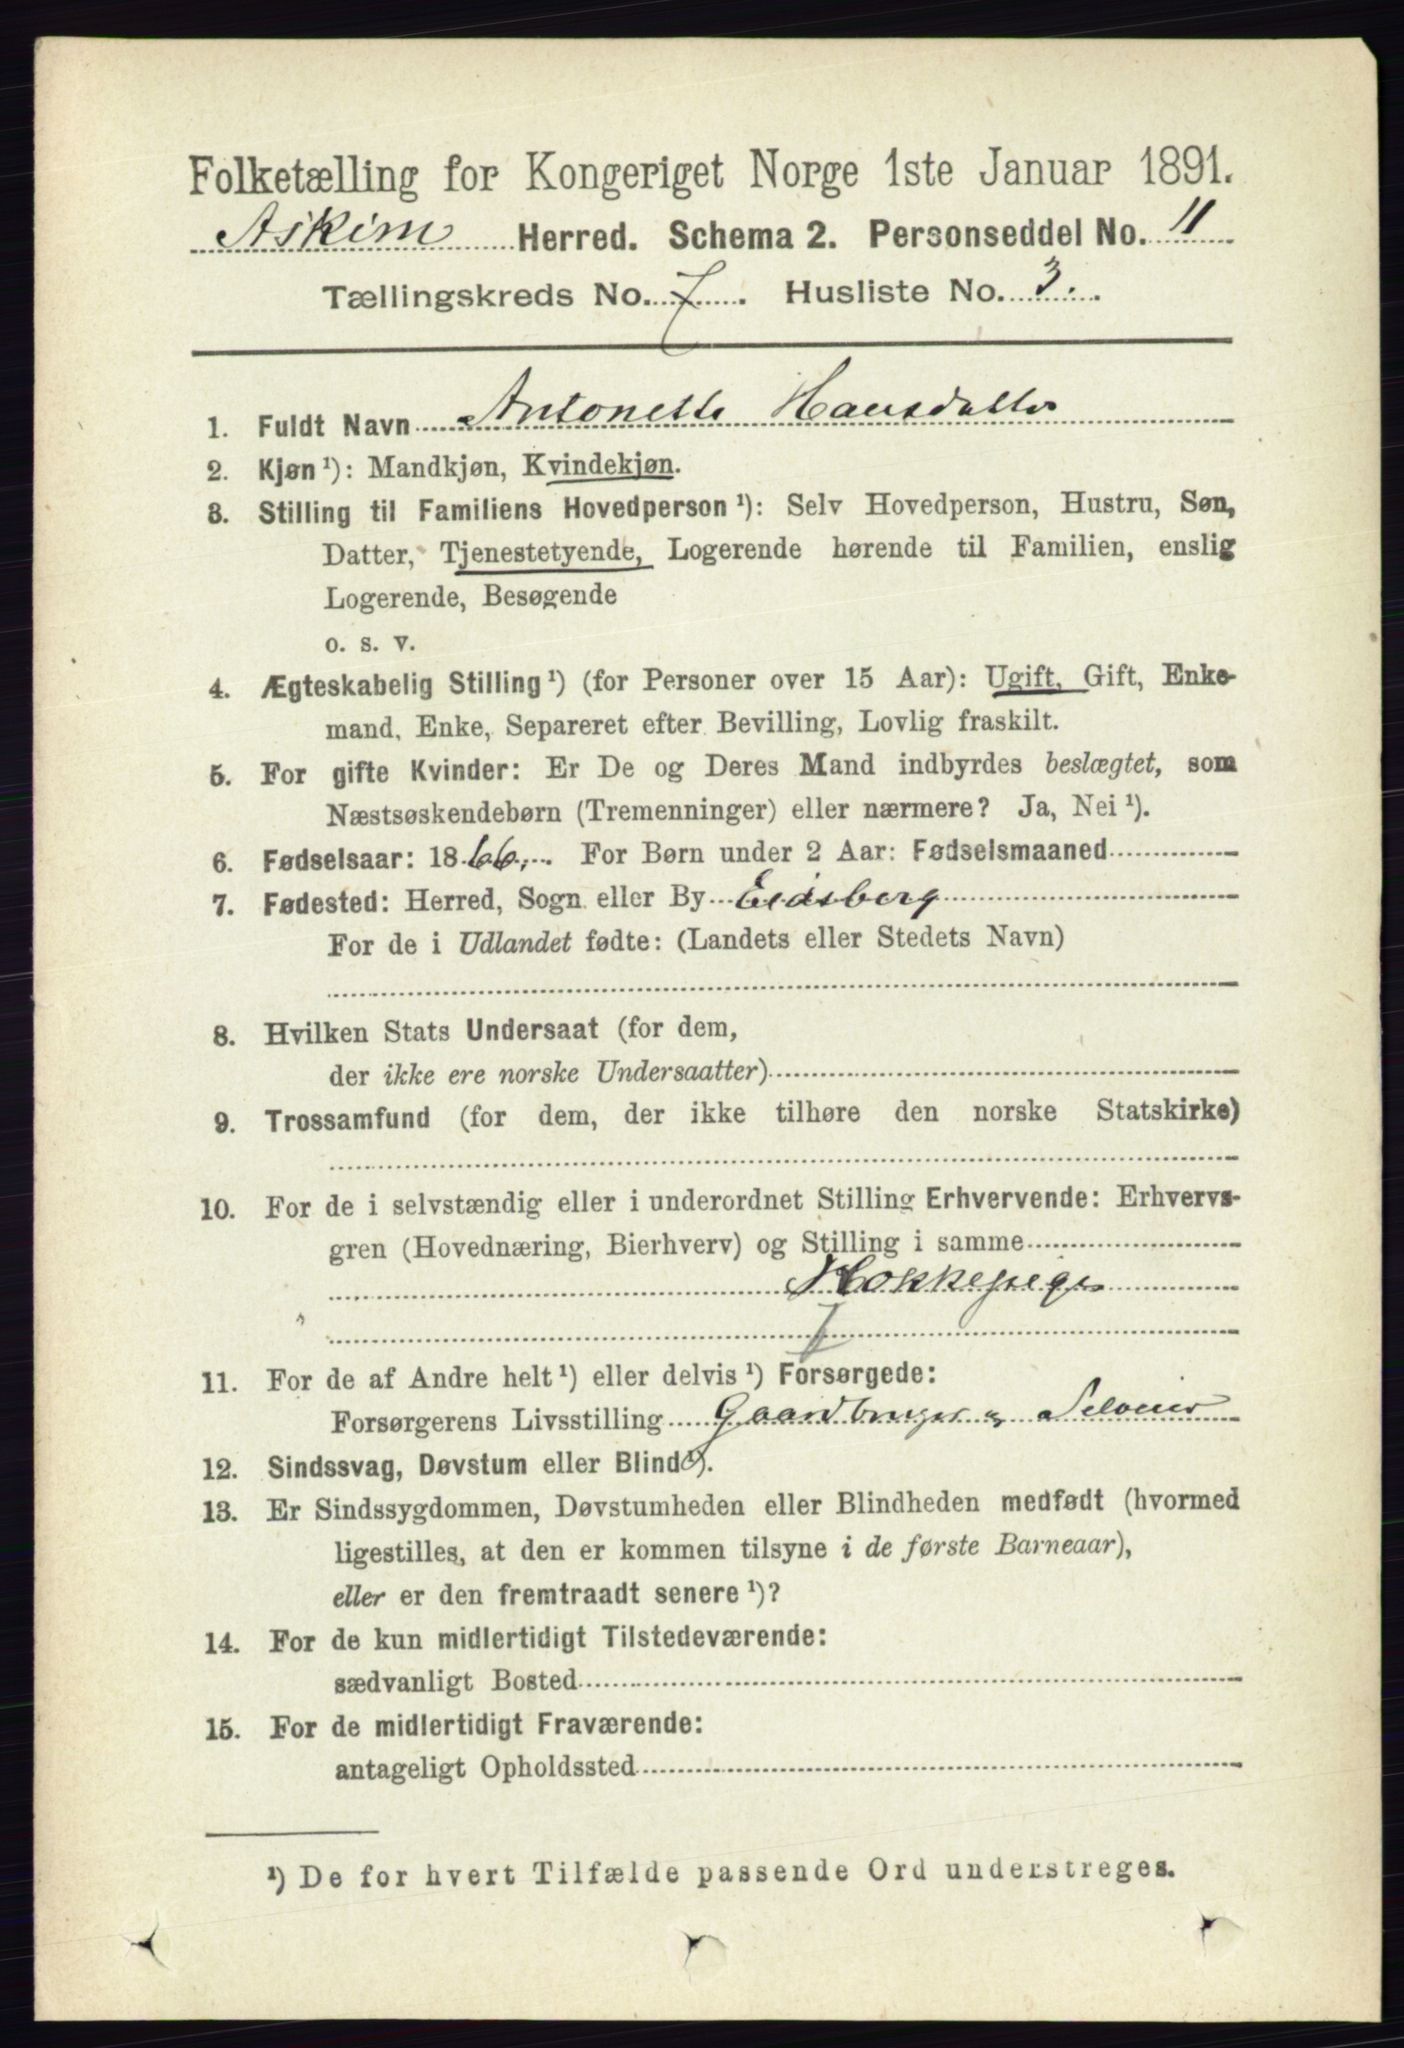 Folketælling for Kongeriget Norge 1ste Januar 1891.
Askim Herred. Schema 2. Personseddel No. 11
Tællingskreds No. 7. Husliste No. 3.
1. Fuldt Navn Antonette Hansdatter
2. Kjøn ¹): Mandkjøn, Kvindekjøn.
3. Stilling til Familiens Hovedperson ¹): Selv Hovedperson, Hustru, Søn,
Datter, Tjenestetyende, Logerende hørende til Familien, enslig
Logerende, Besøgende
o. s. v.
4. Ægteskabelig Stilling ¹) (for Personer over 15 Aar): Ugift, Gift, Enke-
mand, Enke, Separeret efter Bevilling, Lovlig fraskilt.
5. For gifte Kvinder: Er De og Deres Mand indbyrdes beslægtet, som
Næstsøskendebørn (Tremenninger) eller nærmere? Ja, Nei ¹).
6. Fødselsaar: 1866. For Børn under 2 Aar: Fødselsmaaned
7. Fødested: Herred, Sogn eller By Eidsberg
For de i Udlandet fødte: (Landets eller Stedets Navn)
8. Hvilken Stats Undersaat (for dem,
der ikke ere norske Undersaatter)
9. Trossamfund (for dem, der ikke tilhøre den norske Statskirke)
10. For de i selvstændig eller i underordnet Stilling Erhvervende: Erhvervs-
gren (Hovednæring, Bierhverv) og Stilling i samme
Kokkepige
11. For de af Andre helt ¹) eller delvis ¹) Forsørgede:
Forsørgerens Livsstilling Gaardbruger Seloeier
12. Sindssvag, Døvstum eller Blind ¹).
13. Er Sindssygdommen, Døvstumheden eller Blindheden medfødt (hvormed
ligestilles, at den er kommen tilsyne i de første Barneaar),
eller er den fremtraadt senere ¹)?
14. For de kun midlertidigt Tilstedeværende:
sædvanligt Bosted
15. For de midlertidigt Fraværende:
antageligt Opholdssted
¹) De for hvert Tilfælde passende Ord understreges.